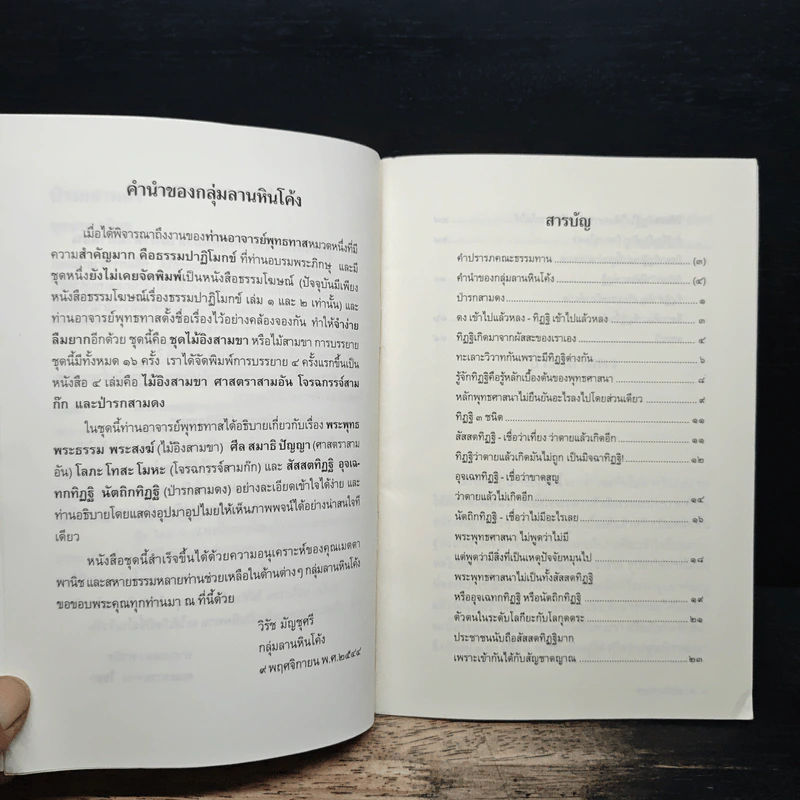 คำนำของกลุ่มลานหินโค้ง
เมื่อได้พิจารณาถึงงานของท่านอาจารย์พุทธทาสหมวดหนึ่งที่มี
ความสำคัญมาก คือธรรมปาฏิโมกข์ ที่ท่านอบรมพระภิกษุ และมี
ชุดหนึ่งยังไม่เคยจัดพิมพ์เป็นหนังสือธรรมโฆษณ์ (ปัจจุบันมีเพียง
หนังสือธรรมโฆษณ์เรื่องธรรมปาฏิโมกข์ เล่ม ๑ และ ๒ เท่านั้น) และ
ท่านอาจารย์พุทธทาสตั้งชื่อเรื่องไว้อย่างคล้องจองกัน ทำให้จำง่าย
ลืมยากอีกด้วย ชุดนี้คือ ชุดไม้อิงสามขา หรือไม้สามขา การบรรยาย
ชุดนี้มีทั้งหมด ๑๖ ครั้ง เราได้จัดพิมพ์การบรรยาย ๔ ครั้งแรกขึ้นเป็น
หนังสือ ๔ เล่มคือ ไม้อิงสามขา ศาสตราสามอัน โจรฉกรรจ์สาม
ก๊ก และป่ารกสามดง
ในชุดนี้ท่านอาจารย์พุทธทาสได้อธิบายเกี่ยวกับเรื่อง พระพุทธ
พระธรรม พระสงฆ์ (ไม้อิงสามขา) ศีล สมาธิ ปัญญา (ศาสตราสาม
อัน) โลภะ โทสะ โมหะ (โจรฉกรรจ์สามก๊ก) และ สัสสตทิฏฐิ อุจเฉ-
ทกทิฏฐิ นัตถิกทิฏฐิ (ป่ารกสามดง) อย่างละเอียดเข้าใจได้ง่าย และ
ท่านอธิบายโดยแสดงอุปมาอุปไมยให้เห็นภาพพจน์ได้อย่างน่าสนใจที
เดียว
หนังสือชุดนี้สำเร็จขึ้นได้ด้วยความอนุเคราะห์ของคุณเมตตา
พานิช และสหายธรรมหลายท่านช่วยเหลือในด้านต่างๆ กลุ่มลานหินโค้ง
ขอขอบพระคุณทุกท่านมา ณ ที่นี้ด้วย
วิรัช มัญชุศรี
กลุ่มลานหินโค้ง
๙ พฤศจิกายน พ.ศ.๒๕๔๔
สารบัญ
คำปรารภคณะธรรมทาน (๓)
คำนำของกลุ่มลานหินโค้ง (๔)
ป่ารกสามดง ๑
ดง เข้าไปแล้วหลง - ทิฏฐิ เข้าไปแล้วหลง ๓
ทิฏฐิเกิดมาจากผัสสะของเราเอง ๔
ทะเลาะวิวาทกันเพราะมีทิฏฐิต่างกัน ๖
รู้จักทิฏฐิคือรู้หลักเบื้องต้นของพุทธศาสนา ๘
หลักพุทธศาสนาไม่ยืนยันอะไรลงไปโดยส่วนเดียว ๙
ทิฏฐิ ๓ ชนิด ๑๑
สัสสตทิฏฐิ - เชื่อว่าเที่ยง ว่าตายแล้วเกิดอีก ๑๑
ทิฏฐิว่าตายแล้วเกิดมันไม่ถูก เป็นมิจฉาทิฏฐิ! ๑๒
อุจเฉทกทิฏฐิ - เชื่อว่าขาดสูญ
ว่าตายแล้วไม่เกิดอีก ๑๔
นัตถิกทิฏฐิ - เชื่อว่าไม่มีอะไรเลย ๑๖
พระพุทธศาสนา ไม่พูดว่าไม่มี
แต่พูดว่ามีสิ่งที่เป็นเหตุปัจจัยหมุนไป ๑๘
พระพุทธศาสนาไม่เป็นทั้งสัสสตทิฏฐิ
หรืออุจเฉทกทิฏฐิ หรือนัตถิกทิฏฐิ ๑๙
ตัวตนในระดับโลกียะกับโลกุตตระ ๒๑
ประชาชนนับถือสัสสตทิฏฐิมาก
เพราะเข้ากันได้กับสัญชาตญาณ ๒๓